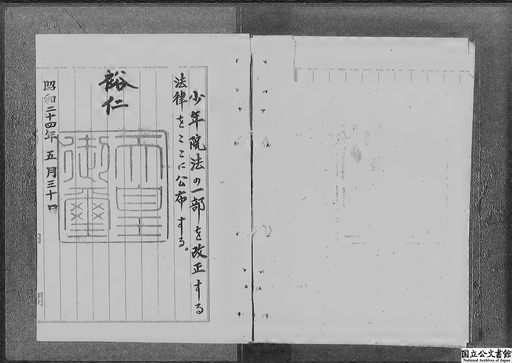 少年院法の一部を改正する
法律をここに公布する。
裕仁
天皇
御璽
昭和二十四年五月三十日
国立公文書館
National Archives of Japan